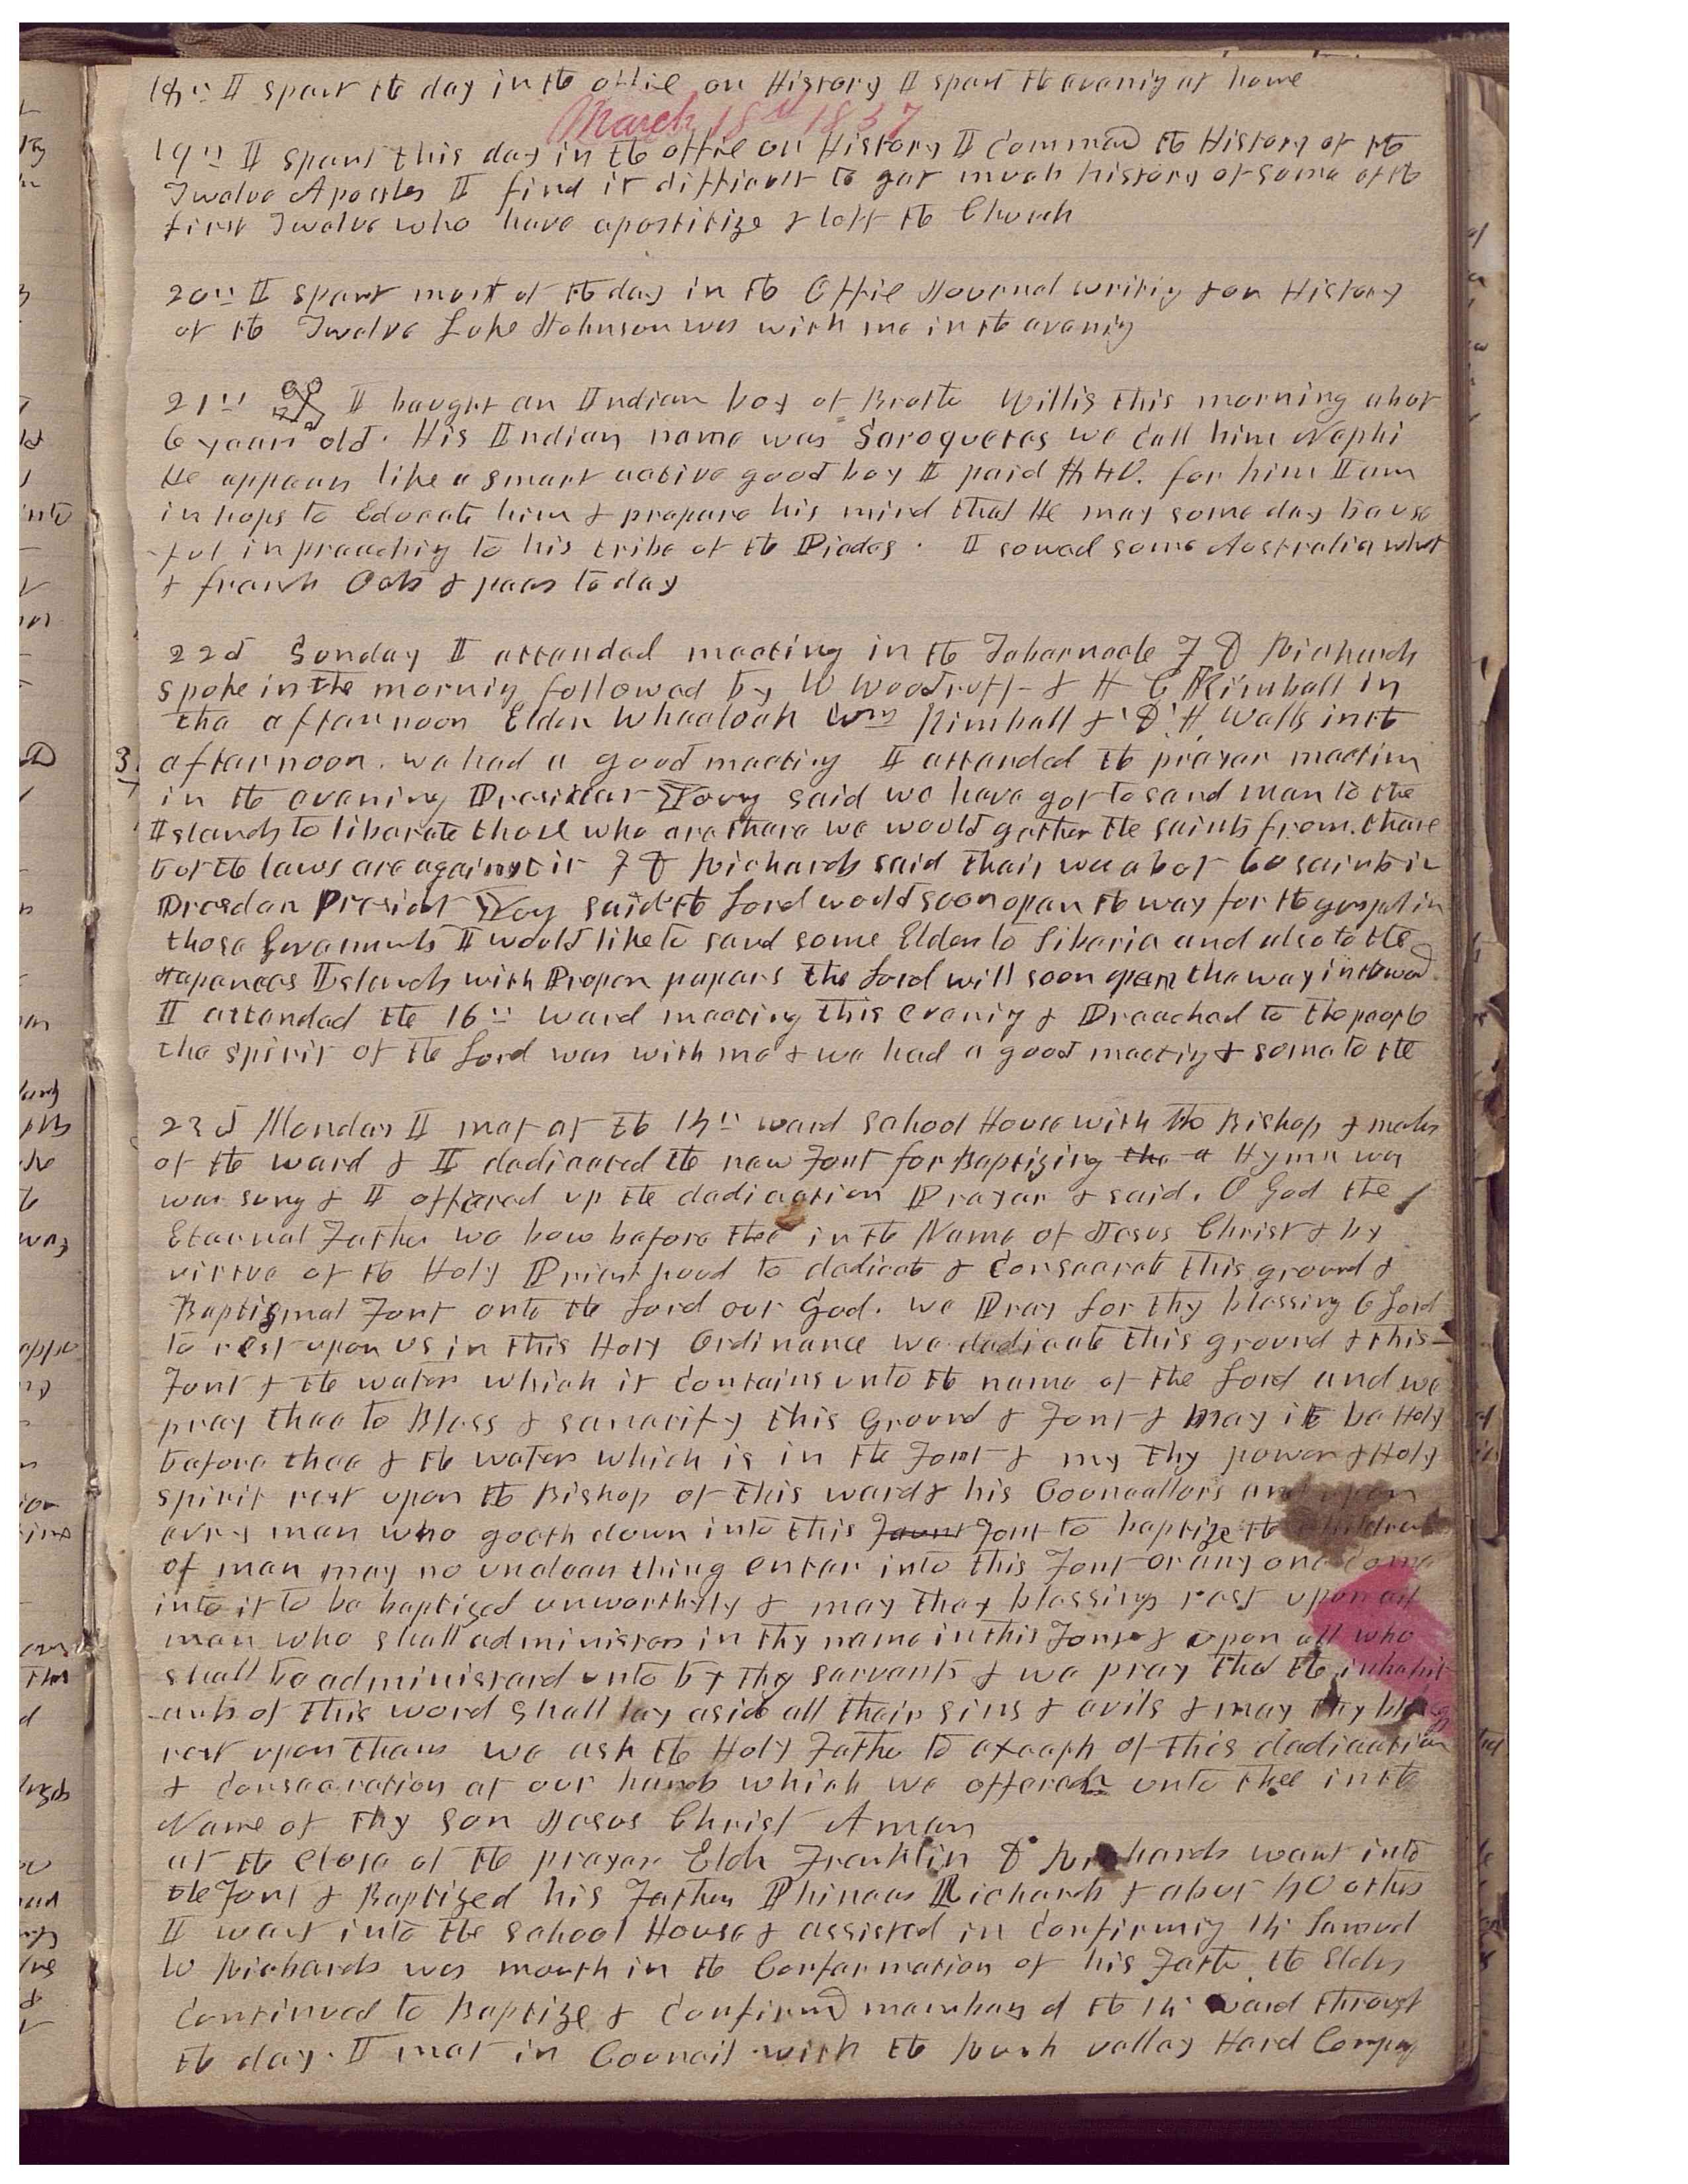 18th I spent the day in the office on History I spent the evening at home
March 18th 1857
19th I spent this day in the office on History I Commenced the History of the
Twelve Apostles I find it difficult to get much history of some of the
first Twelve who have apostitize & left the Church
20th I spent most of the day in the Office Journal writing & on History
of the Twelve Luke Johnson was with me in the evening
21st I bought an Indian boy of Brother Willis this morning about
6 years old. His Indian name was Saroquetes we call him Nephi
He appears like a smart active good boy I paid $40. for him I am
in hops to Educate him & prepare his mind that He may some day be use
ful in preaching to his tribe of the Piedes. I sowed some Australia wheat
& french Oats & peas to day
22d Sunday I attended meeting in the Tabernacle F D Richards
spoke in the morning followed by W Woodruff & H C Kimball in
the afternoon Elder Wheelock Wm Kimball & D. H. Wells in the
3. afternoon. we had a good meeting I attended the prayer meeting
in the evening President Young said we have got to send men to the
Islands to liberate those who are there we would gather the saints from there
but the laws are against it F D Richards said their was about 60 saints in
Dresden President Young said the Lord would soon open the way for the gospel in
those Governments I would like to send some Elders to Siberia and also to the
Japanees Islands with Proper papers the Lord will soon open the way in the word
I attended the 16th ward meeting this evening & Preached to the people
the spirit of the Lord was with me & we had a good meeting & some to the
23d Monday I met at the 14th ward school House with the Bishop & males
of the ward & I dedicated the new Font for Baptizing the a Hymn was
was sung & I offered up the dedication Prayer & said. O God the
Eternal Father we bow before thee in the Name of Jesus Christ & by
virtue of the Holy Priesthood to dedicate & Consecrate this ground &
Baptismal Font unto the Lord our God. we Pray for thy blessing O Lord
to rest upon us in this Holy Ordinance we dedicate this ground & this
Font & the water which it Contains unto the name of the Lord and we
pray thee to Bless & sanctify this Ground & Font & may it be Holy
before thee & the water which is in the Font & my thy power & Holy
spirit rest upon the Bishop of this ward & his Councellors and upon
evry man who goeth down into this Faunt Font to baptize the Children
of men may no unclean thing enter into this Font or any one Come
into it to be baptized unworthyly & may they blessings rest upon all
men who shall administer in thy name in this Font & upon all who
shall be administered unto by thy servants & we pray that the inhabit
ants of this word shall lay aside all their sins & evils & may thy blessings
rest upon them we ask the Holy Father to except of this dedication
& Consecration at our hands which we offered unto thee in the
Name of thy son Jesus Christ Amen
at the close of the prayer Elder Franklin D Richards went into
the Font & Baptized his Father Phinees Richards & about 40 others
I went into the school House & assisted in Confirming 14. Samuel
W Richards was mouth in the Confermation of his Father the Elders
Continued to Baptize & Confirmd members of the 14 ward through
the day. I met in Council with the Rush valley Herd Company